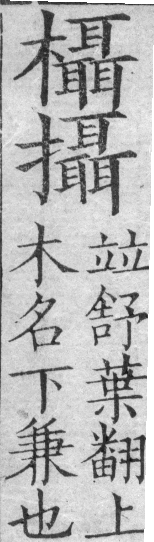 欇攝
竝舒葉翻上
木名下兼也